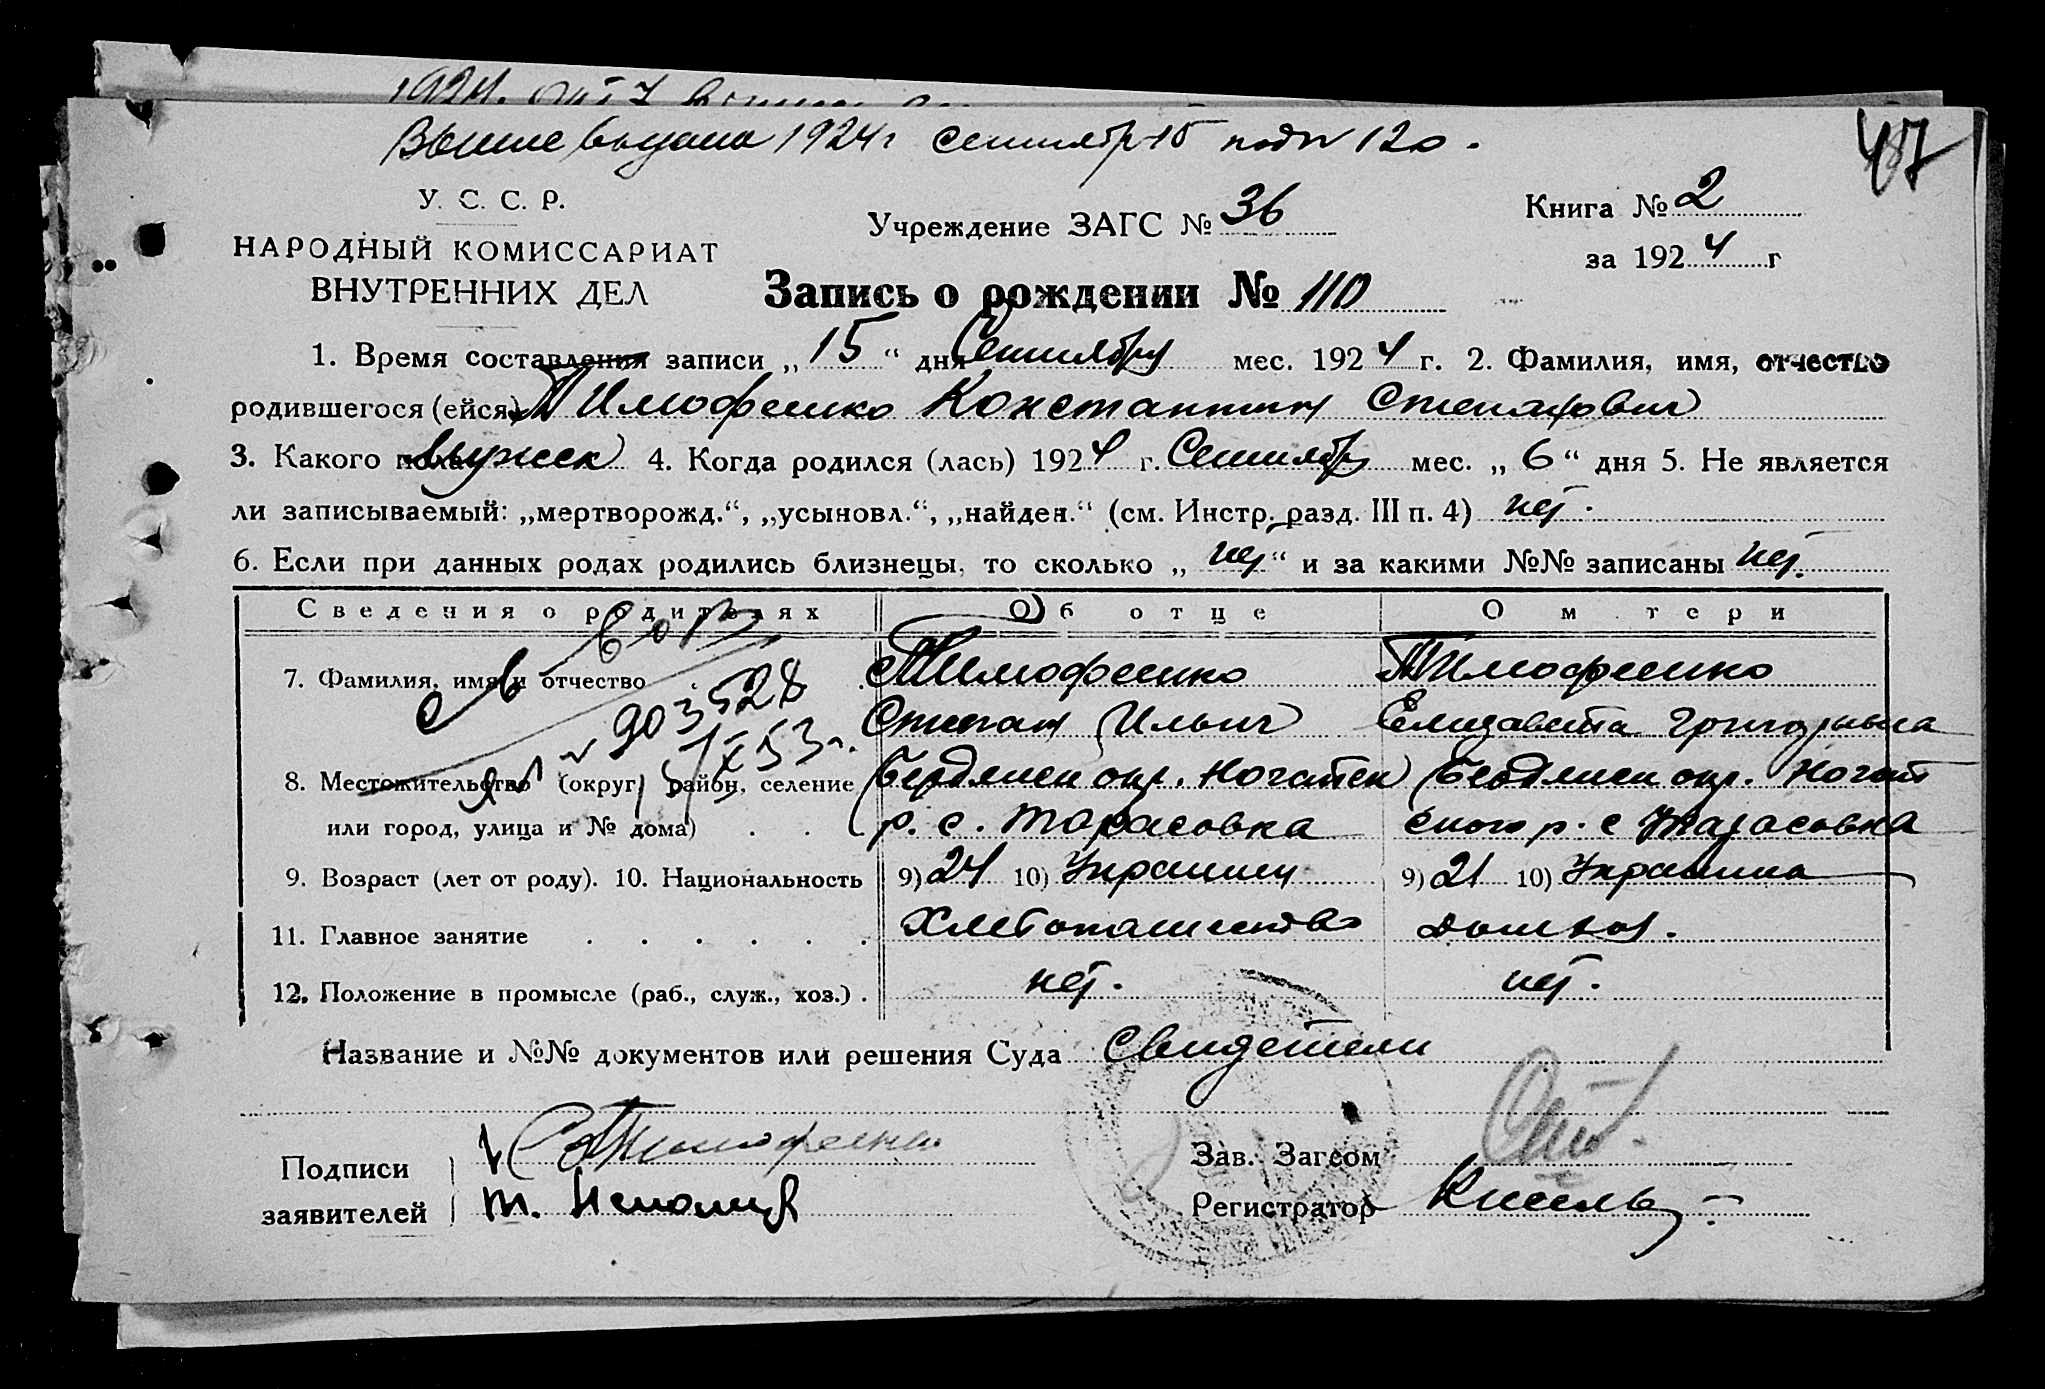 выдана 1924 г сентябр 15 под № 120.
47
У. С. С. Р.
НАРОДНЫЙ КОМИССАРИАТ
ВНУТРЕННИХ ДЕЛ
Учреждение ЗАГС № 36
Книга № 2
за 1924 г
Запись о рождении № 110
1. Время составления записи „15“ дня Сентября мес. 1924 г. 2. Фамилия, имя, отчество
родившегося (ейся) Тимофеенко Константин Степанович
3. Какого пола мужск 4. Когда родился (лась) 1924 г. Сентябр мес. „6“ дня 5. Не является
ли записываемый: „мертворожд.“, „усыновл.“, „найден.“ (см. Инстр. разд. III п. 4) нет.
6. Если при данных родах родились близнецы, то сколько „нет“ и за какими №№ записаны нет.
Сведения о родителях Об отце О м тери
7. Фамилия, имя и отчество Тимофеенко Тимофеенко
Степан Ильич Елизавета Григорьвна
№ 903528
8. Местожительство (округ, район, селение Бердянск окр. Ногайск Бердянск окр. Ногай
или город, улица и № дома) р. с. Тарасовка ского р. с Тарасовка
9. Возраст (лет от роду). 10. Национальность 9) 24 10) Украинец 9) 21 10) Украинка
11. Главное занятие Хлебопашество домхоз.
12. Положение в промысле (раб., служ., хоз.) нет. нет.
Название и №№ документов или решения Суда Свидетели
Подписи
заявителей
Тимофеенко
Зав. Загсом
Регистратор Кисель